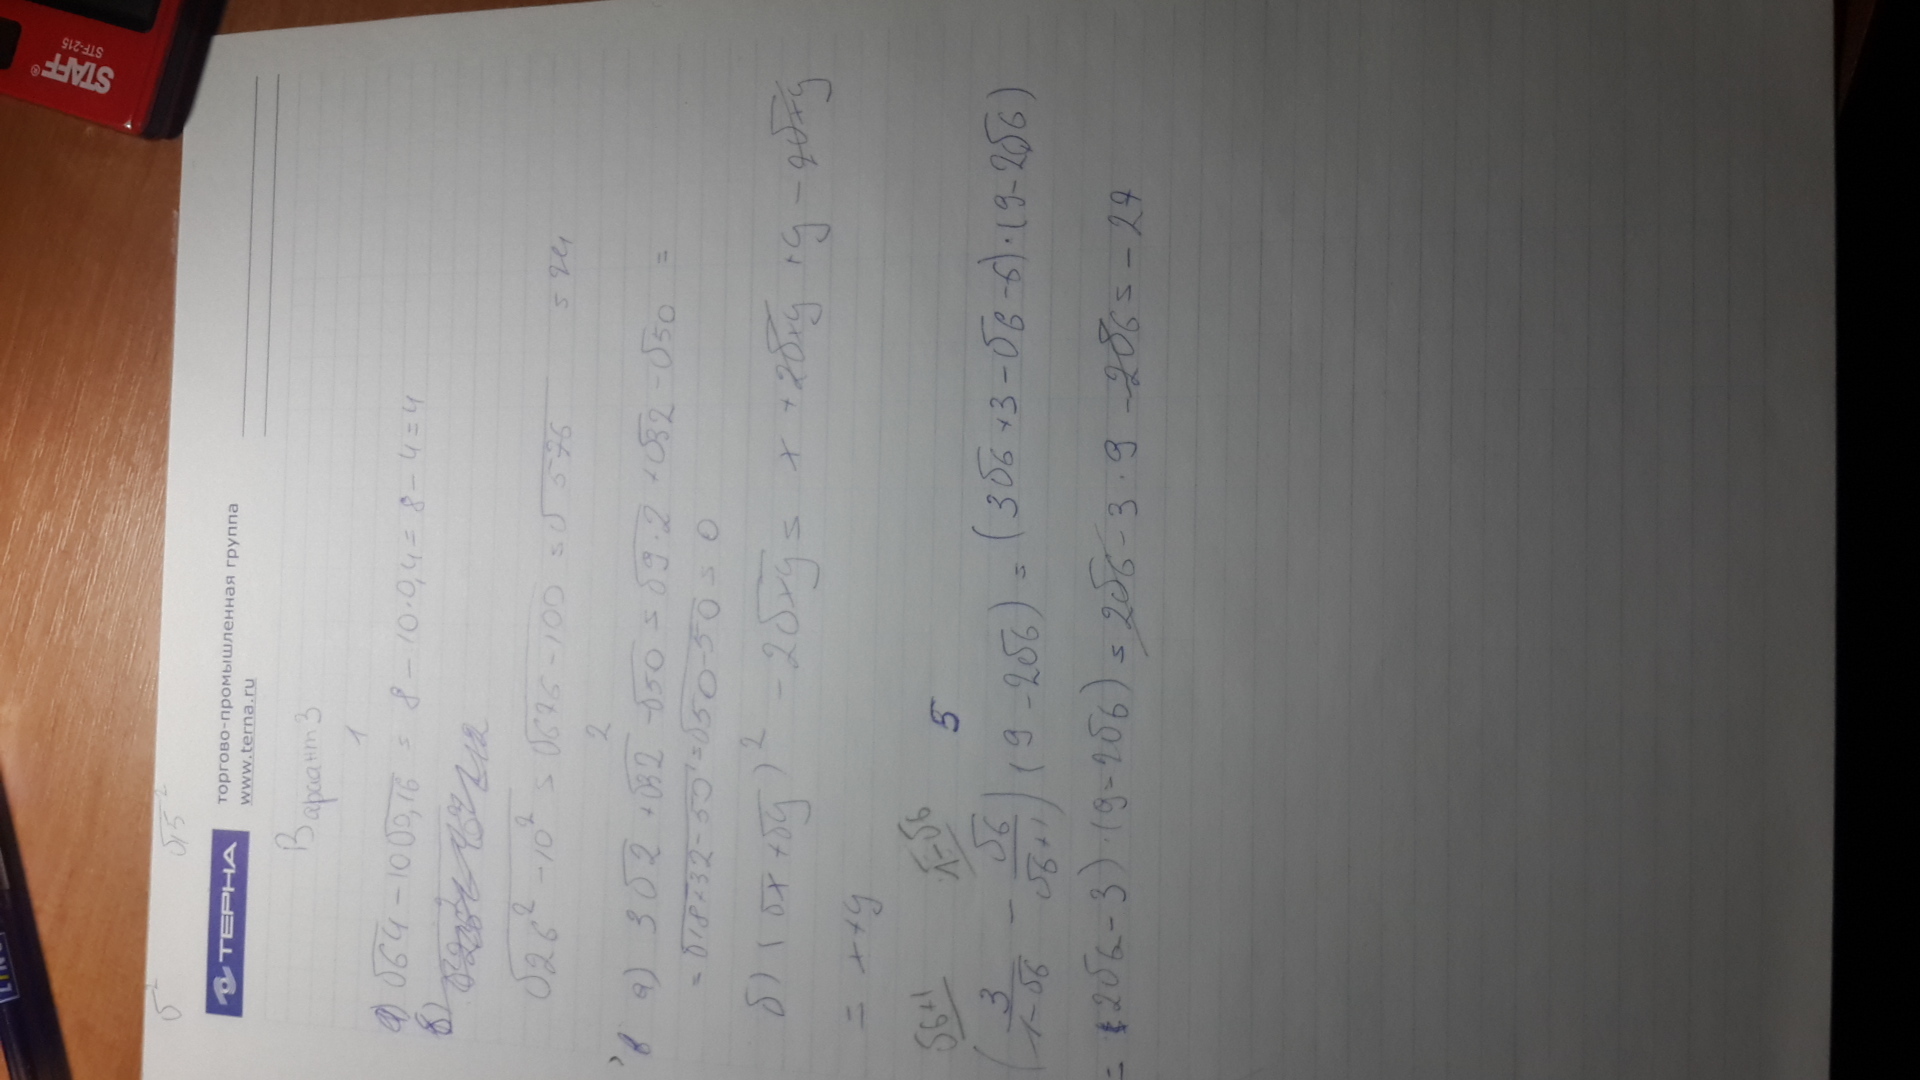 STAFF®
STF-215
√²
√15²
ТЕРНА
торгово-промышленная группа
www.terna.ru
Вариант 3
1
а) √64 - 10√0,16 = 8 - 10·0,4 = 8 - 4 = 4
в)
√26² - 10² = √676 - 100 = √576 = 24
2
а) 3√2 + √32 - √50 = √9·2 + √32 - √50 =
= √18+32-50 = √50-50 = 0
б) (√x + √y)² - 2√xy = x + 2√xy + y - 2√xy
= x+y
5
√6+1
1-√6
(3/1-√6 - √6/√6+1)(9 - 2√6) = (3√6 + 3 - √6 - 6)·(9 - 2√6)
= (2√6 - 3)·(9 - 2√6) = 2√6 - 3·9 - 2√6 = - 27